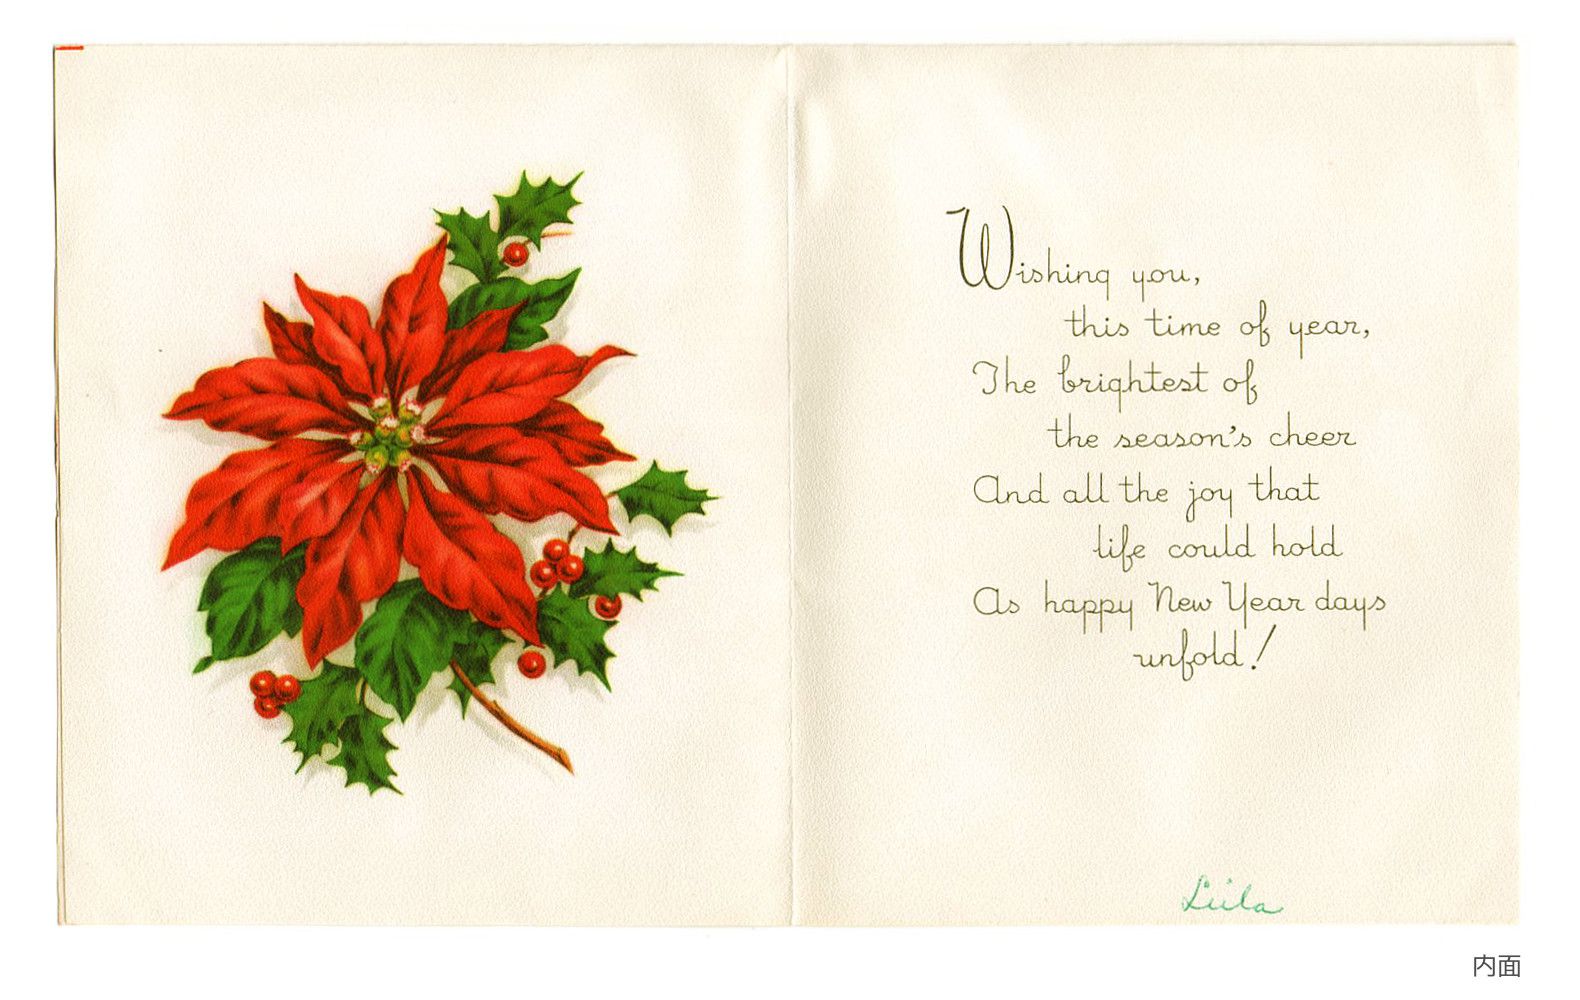 Wishing you,
this time of year,
The brightest of
the season's cheer
And all the joy that
life could hold
As happy New Year days
unfold!
Liila
内面